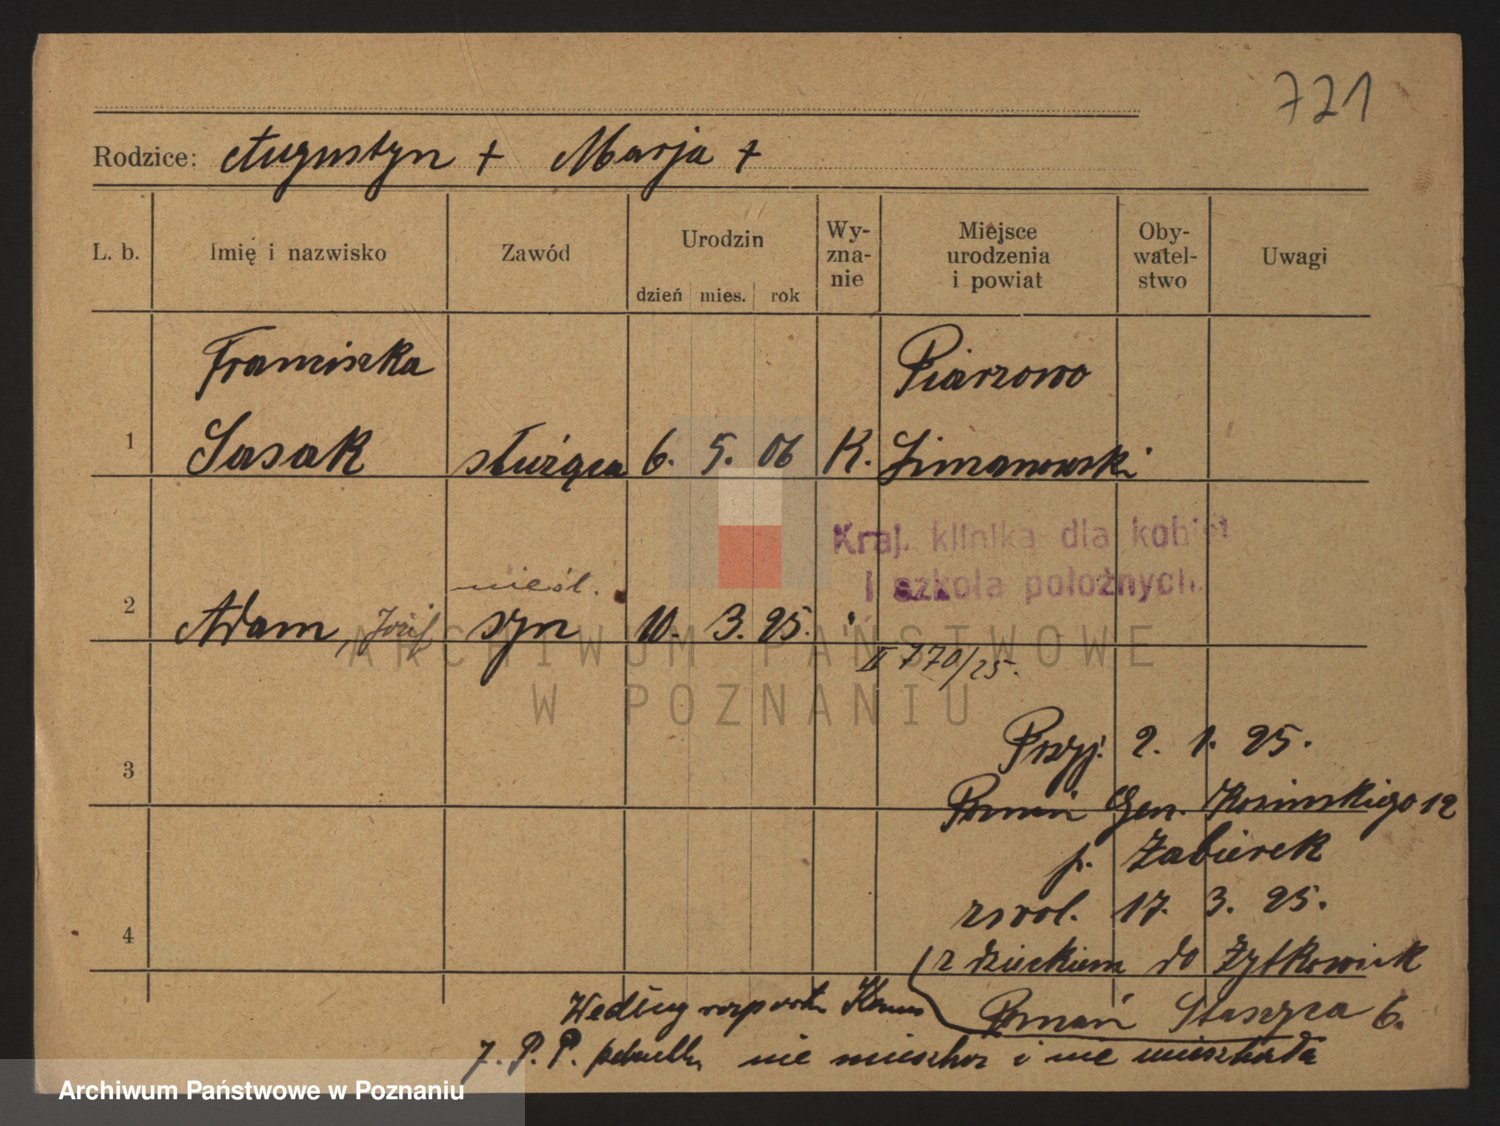 721
Rodzice: Augustyn + Marja +
L. b. Imię i nazwisko Zawód Urodzin dzień mies. rok Wy-zna-nie Miejsce urodzenia i powiat Oby-watel-stwo Uwagi
Franciszka Piarzowo
1 Sasak służąca 6. 5. 06 K. Limanowski
Kraj. klinika dla kobiet
i szkoła położnych.
nieśl.
2 Adam, Józef syn 10. 3. 25. "
II 770/25.
Przyj. 2. 1. 25.
3
Poznań Gen. Kosińskiego 12
p. Żabierek
zwol. 17. 3. 25.
4
z dzieckiem do Żytkowiak
Według raportu
Poznań Staszyca 6.
7. P. P. nie mieszka i nie mieszkała
ARCHIWUM PAŃSTWOWE
W POZNANIU
Archiwum Państwowe w Poznaniu